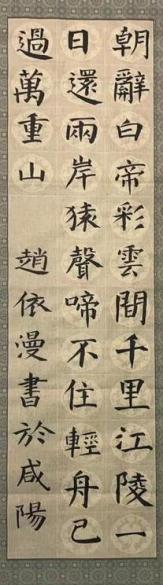 朝辭白帝彩雲間千里江陵一
日還兩岸猿聲啼不住輕舟已
過萬重山 趙依漫書於咸陽